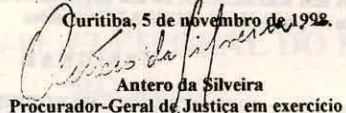 Curitiba, 5 de novembro de 1998.
Antero da Silveira
Procurador-Geral de Justiça em exercício